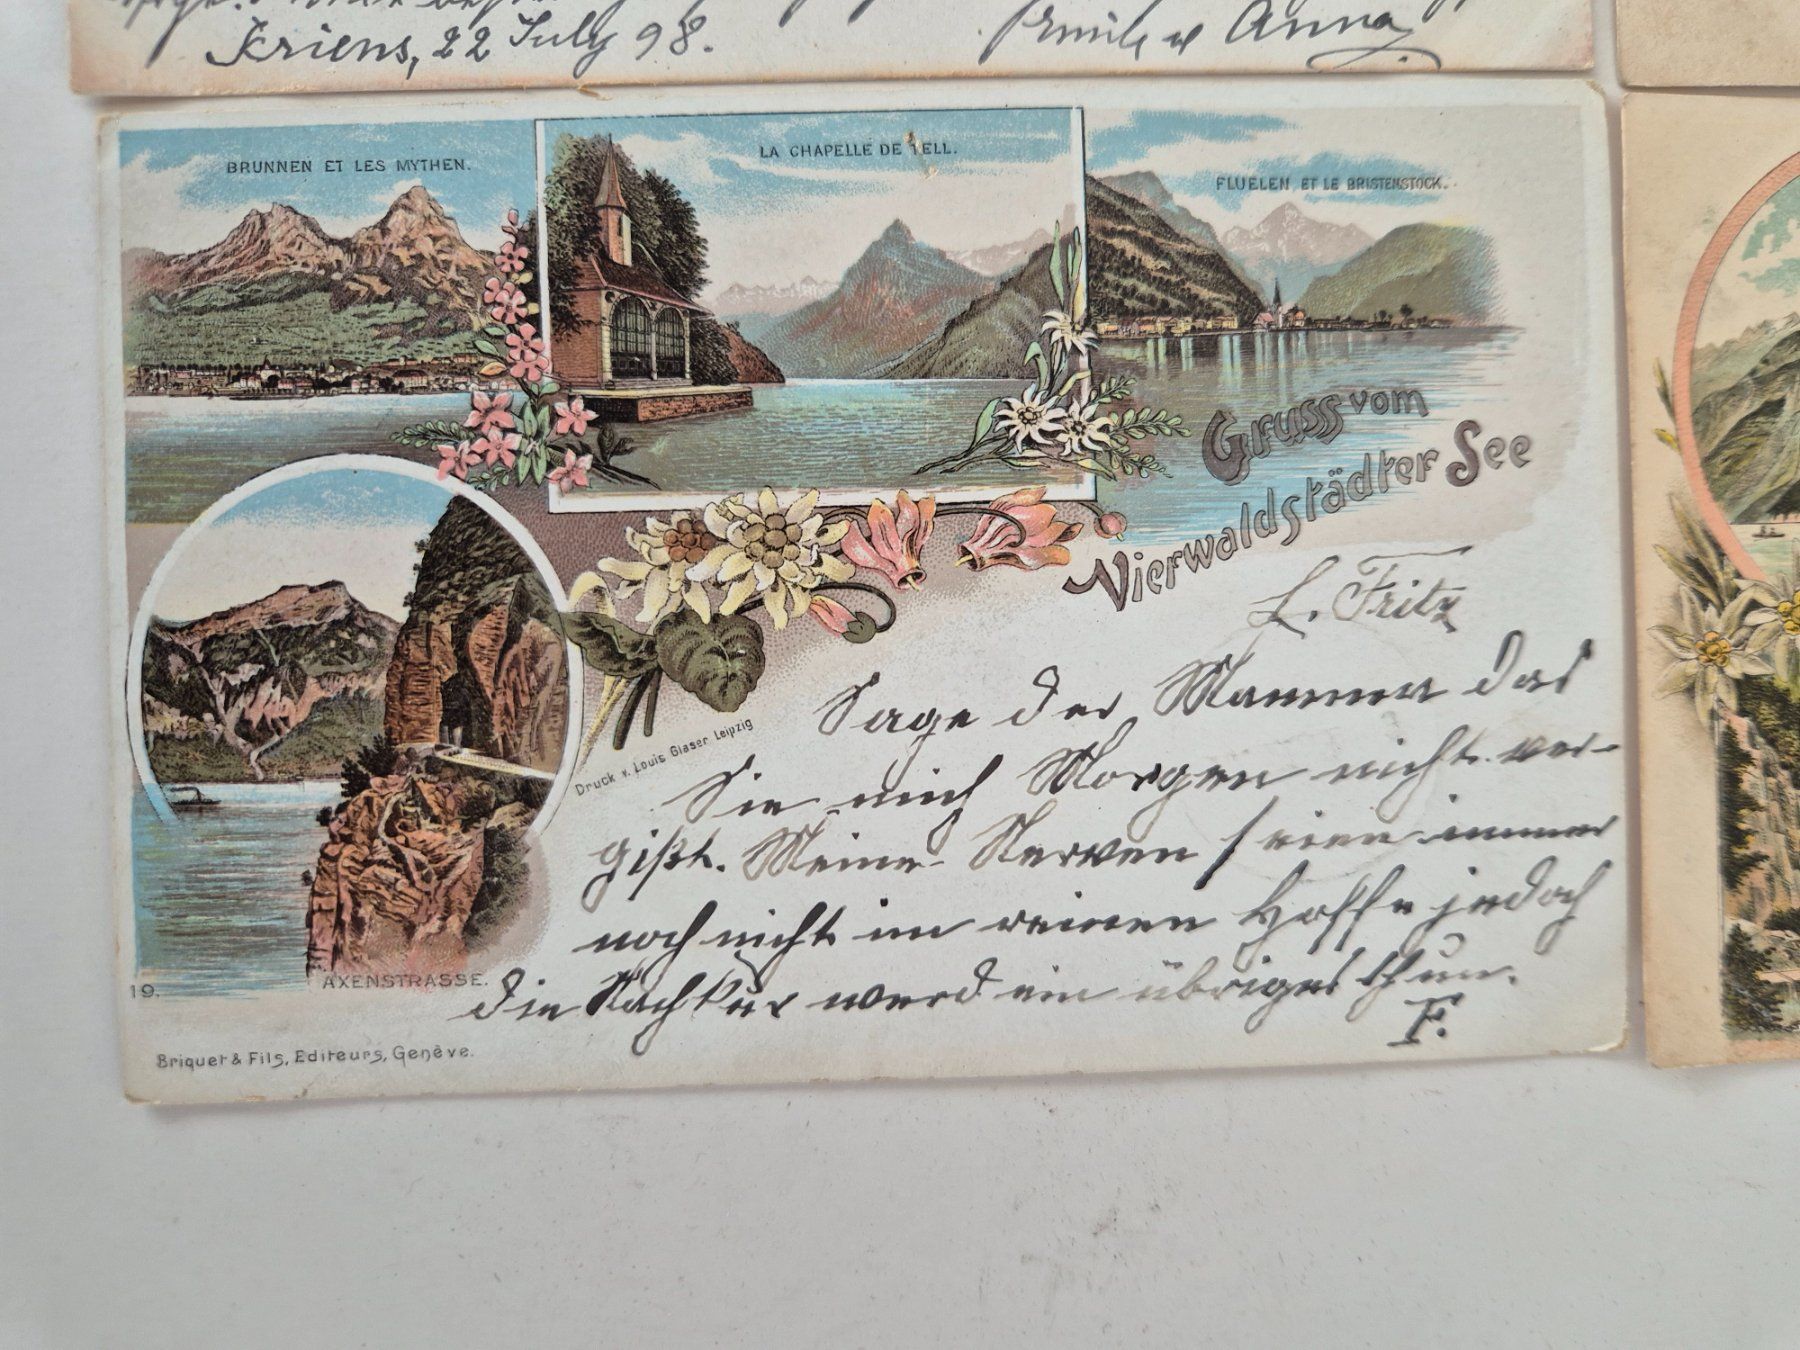 Kriens, 22 July 98.
Emile u Anna
BRUNNEN ET LES MYTHEN.
LA CHAPELLE DE TELL.
FLUELEN ET LE BRISTENSTOCK.
Gruss vom
Vierwaldstädter See
L. Fritz
Sage der Mamma das
Sie mich Morgen nicht ver-
gißt. Meine Nerven seien immer
noch nicht im reinen Hoffe jedoch
die Nachkur werd ein übriges thun.
F.
Druck v. Louis Glaser Leipzig
AXENSTRASSE.
19.
Briquet & Fils, Editeurs, Genève.